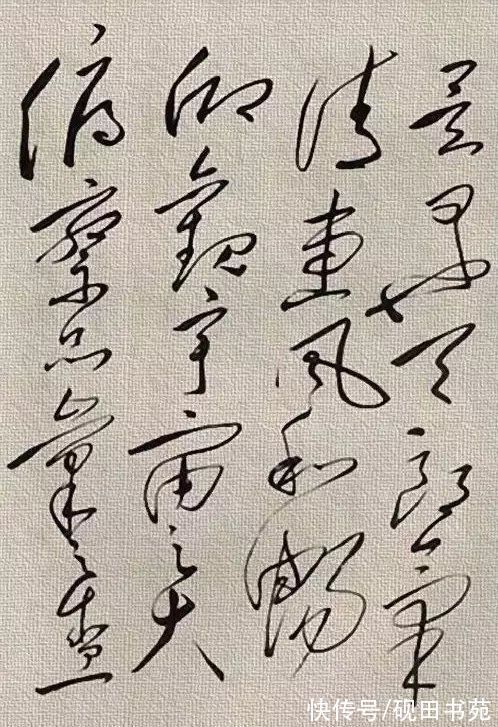 是日也天朗氣
清惠風和暢
仰觀宇宙之大
俯察品類之盛
快传号/砚田书苑